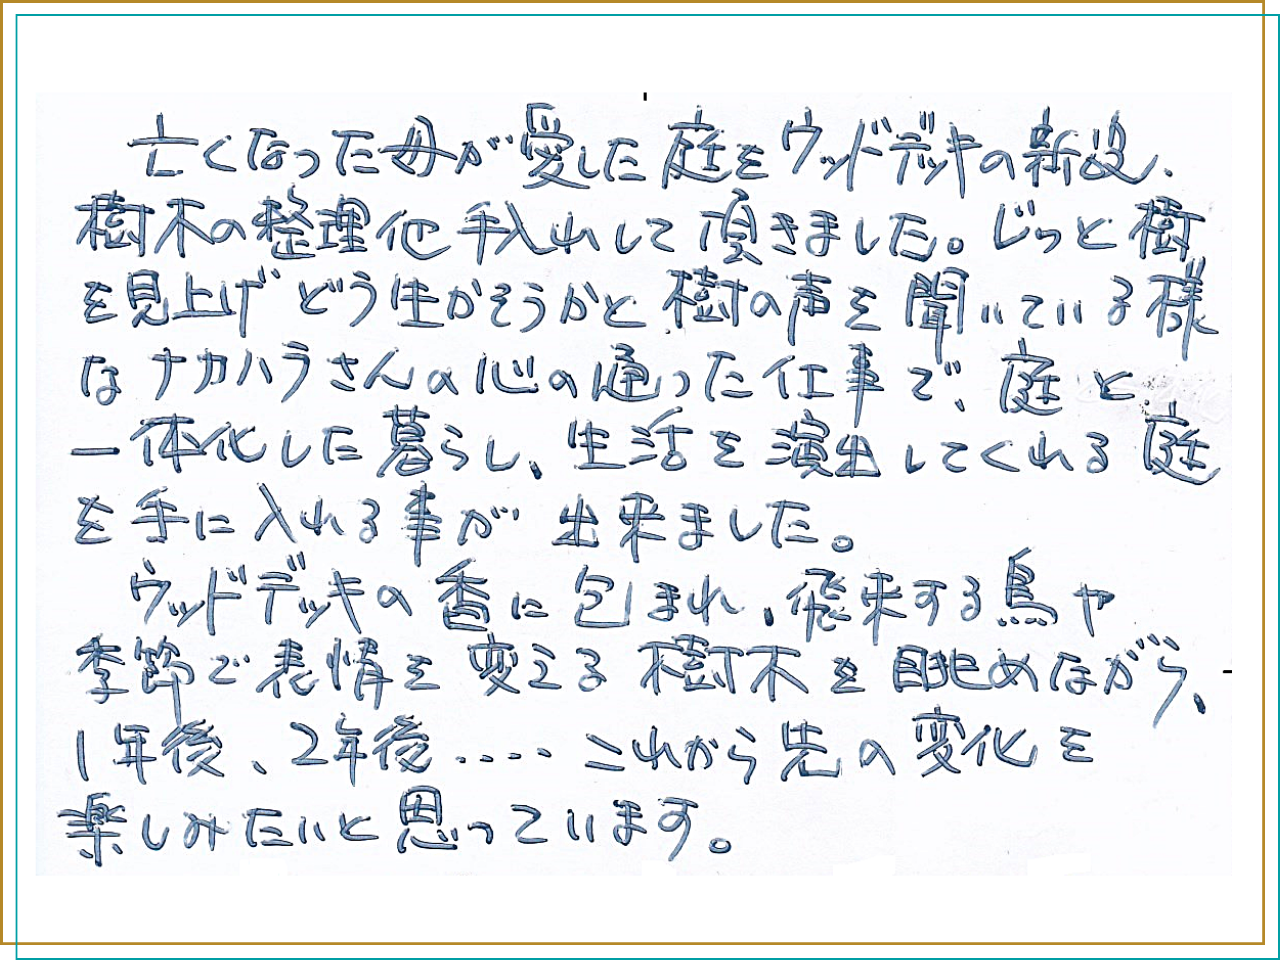 亡くなった母が愛した庭をウッドデッキの新設、
樹木の整理他手入れして頂きました。じっと樹
を見上げどう生かそうかと樹の声を聞いている様
なナカハラさんの心の通った仕事で、庭と
一体化した暮らし、生活を演出してくれる庭
を手に入れる事が出来ました。
ウッドデッキの香に包まれ、飛来する鳥や
季節で表情を変える樹木を眺めながら、
1年後、2年後‥‥これから先の変化を
楽しみたいと思っています。